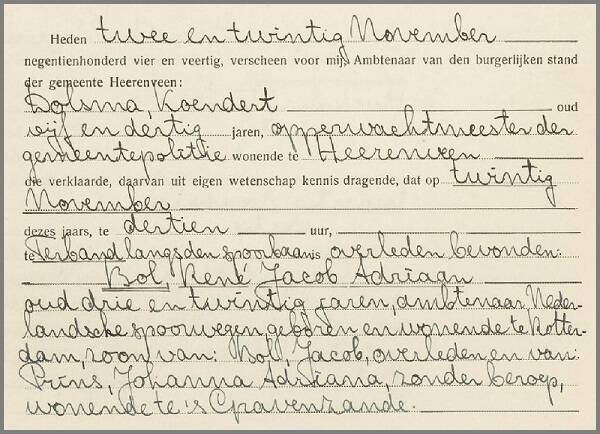 Heden twee en twintig November
negentienhonderd vier en veertig, verscheen voor mij, Ambtenaar van den burgerlijken stand
der gemeente Heerenveen:
Dolsma, Koendert oud
vijf en dertig jaren, opperwachtmeester der
gemeentepolitie wonende te Heerenveen
die verklaarde, daarvan uit eigen wetenschap kennis dragende, dat op twintig
November
dezes jaars, te dertien uur,
te Terband langs den spoorbaan is overleden bevonden:
Bol, René Jacob Adriaan
oud drie en twintig jaren, ambtenaar Neder-
landsche spoorwegen geboren en wonende te Rotter-
dam, zoon van: Bol, Jacob, overleden en van:
Prins, Johanna Adriana, zonder beroep,
wonende te 's Gravenzande.